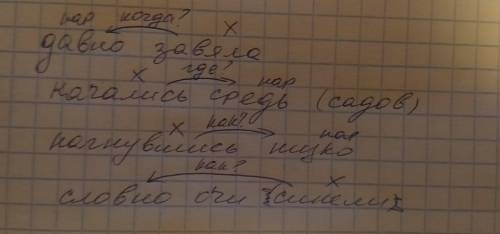 нар когда? х
давно завяла
х где? нар
начались средь (садов)
х как? нар
нагнувшись низко
как? х
словно очи [синели]